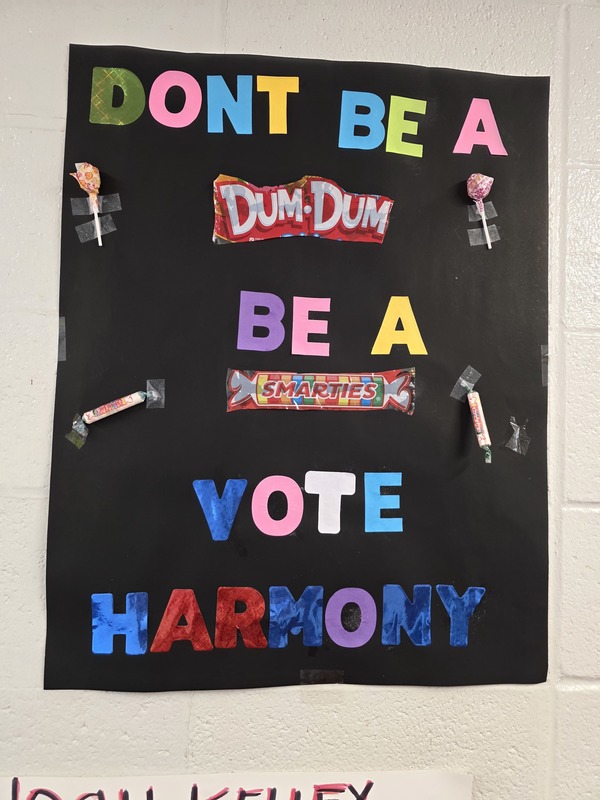 DONT BE A
DUM·DUM
BE A
SMARTIES
VOTE
HARMONY
KELLEY